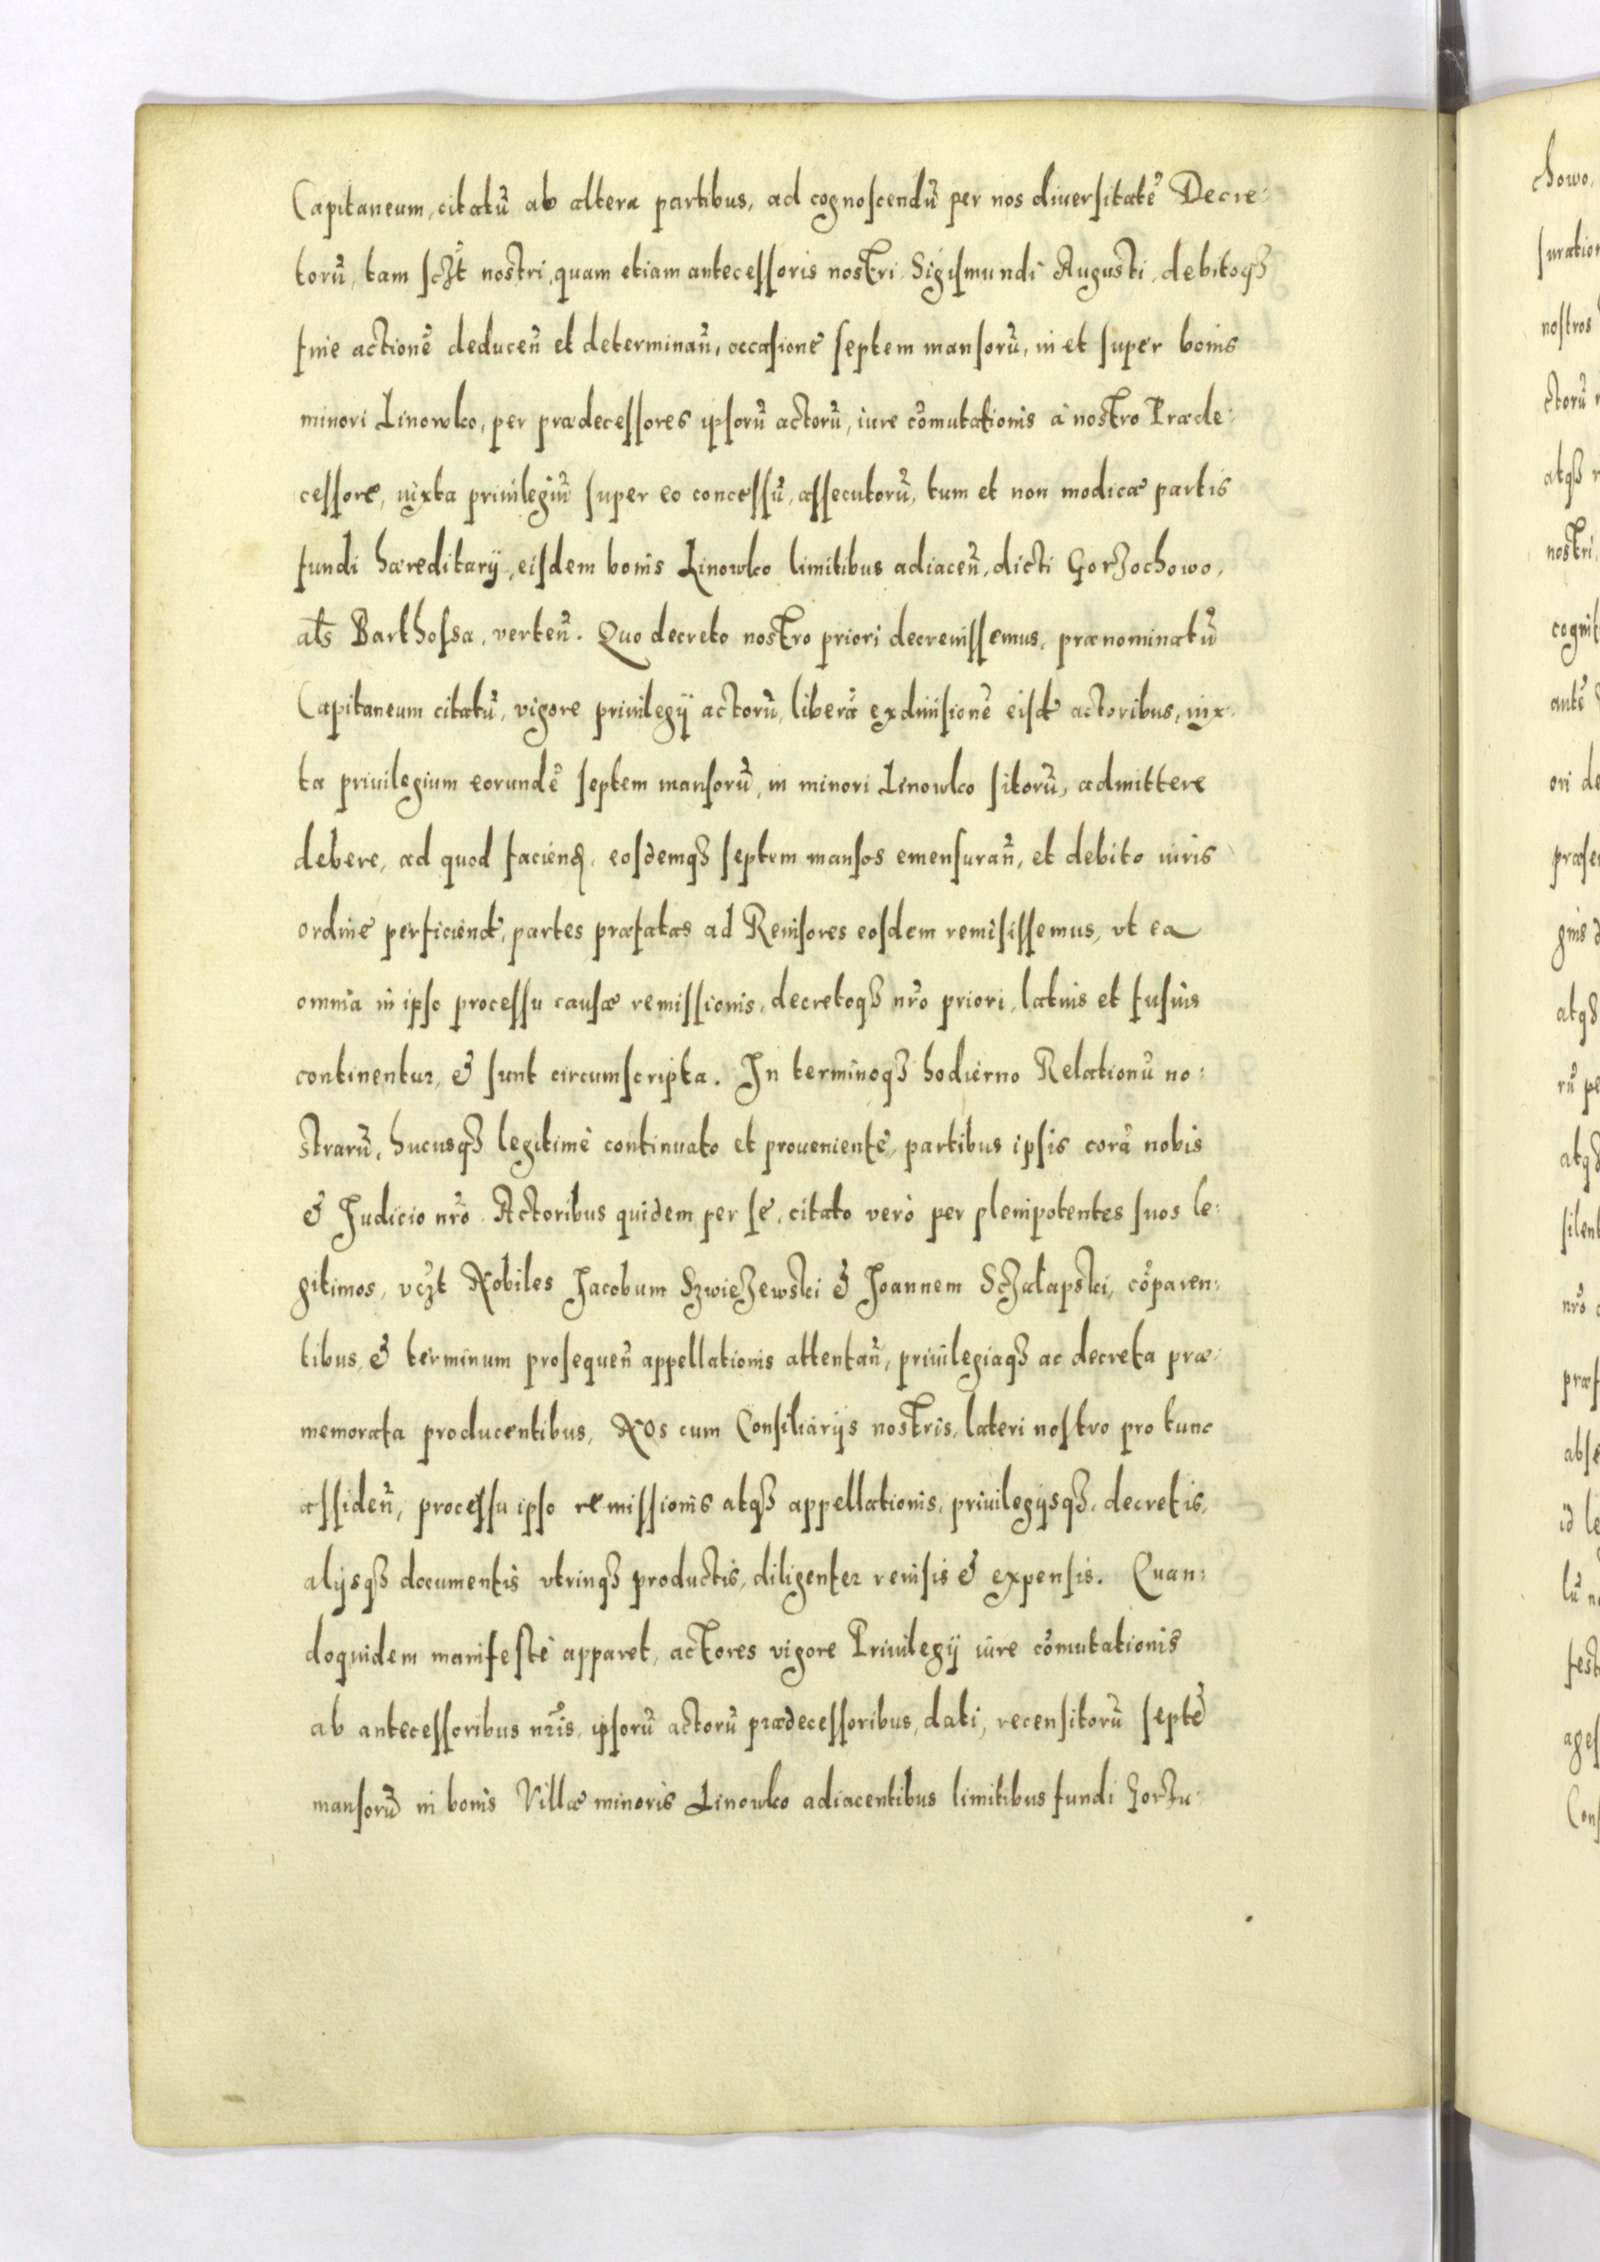 Capitaneum, citatū ab altera partibus, ad cognoscendū per nos diuersitatē Decre:
torū, tam sczt nostri, quam etiam antecessoris nostri Sigismundi Augusti, debitoqȝ
fine actionē deducen̄ et determinan̄, occasione septem mansorū, in et super bonis
minori Linowko, per prædecessores ipsorū actorū, iure cōmutationis à nostro Præde:
cessore, iuxta priuilegiū super eo concessū, assecutorū, tum et non modicæ partis
fundi hæreditarij, eisdem bonis Linowko limitibus adiacen̄, dicti Gorzochowo,
als Barkhossa, verten̄. Quo decreto nostro priori decreuissemus, prænominatū
Capitaneum citatū, vigore priuilegij actorū, liberā exdiuisionē eisd actoribus, iux:
ta priuilegium eorundē septem mansorū, in minori Linowko sitorū, admittere
debere, ad quod faciend, eosdemqȝ septem mansos emensuran̄, et debito iuris
ordine perficiend, partes præfatas ad Reuisores eosdem remisissemus, vt ea
omnia in ipso processu causæ remissionis, decretoqȝ nr̄o priori, latius et fusius
continentur, & sunt circumscripta. In terminoqȝ hodierno Relationū no:
strarū, hucusqȝ legitimè continuato et proueniente, partibus ipsis corā nobis
& Iudicio nr̄o Actoribus quidem per se, citato verò per plenipotentes suos le:
gitimos, vczt Nobiles Jacobum Szwiezewski & Joannem Sczałapski, cōparen:
tibus, & terminum prosequen̄ appellationis attentan̄, priuilegiaqȝ ac decreta præ:
memorata producentibus, Nos cum Consiliarijs nostris, lateri nostro pro tunc
assiden̄, processu ipso remissionis atqȝ appellationis, priuilegijsqȝ, decretis,
alijsqȝ documentis vtrinqȝ productis, diligenter reuisis & expensis. Quan:
doquidem manifestè apparet, actores vigore Priuilegij iure cōmutationis
ab antecessoribus nr̄is, ipsorū actorū prædecessoribus, dati, recensitorū septē
mansorū in bonis Villæ minoris Linowko adiacentibus limitibus fundi Gorzu: